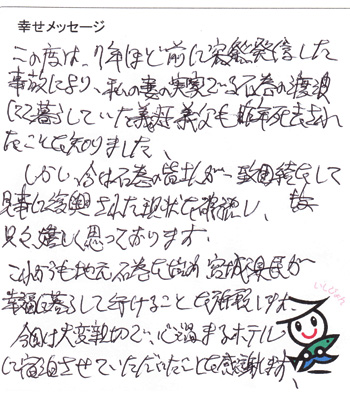 幸せメッセージ
この度は、7年ほど前に突然発生した
により、私の妻の実家である石巻の渡波
にて暮らしていた義母義父も昨年死去され
たことを知りました、
しかし、今は石巻の皆さんが一致団結をして
見事に復興された現状を拝視し、
嬉しく思っております。
これからも地元石巻を始め宮城県民が
幸福に暮らして行けることを祈願します、
今回は大変親切で、心温まるホテル
に宿泊させていただいたことを感謝します、